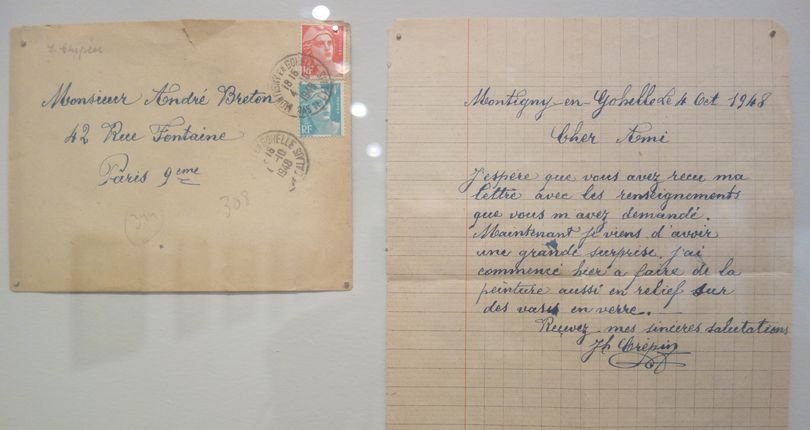 J. Crépin
Monsieur André Breton
42 Rue Fontaine
Paris 9eme
308
RF
1948
Montigny-en-Gohelle Le 4 Oct 1948
Cher Ami
J'espère que vous avez recu ma
lettre avec les renseignements
que vous m avez demandé.
Maintenant je viens d'avoir
une grande surprise. j'ai
commencé hier a faire de la
peinture aussi en relief sur
des vases en verre.
Recevez mes sinceres salutations
Jh Crépin